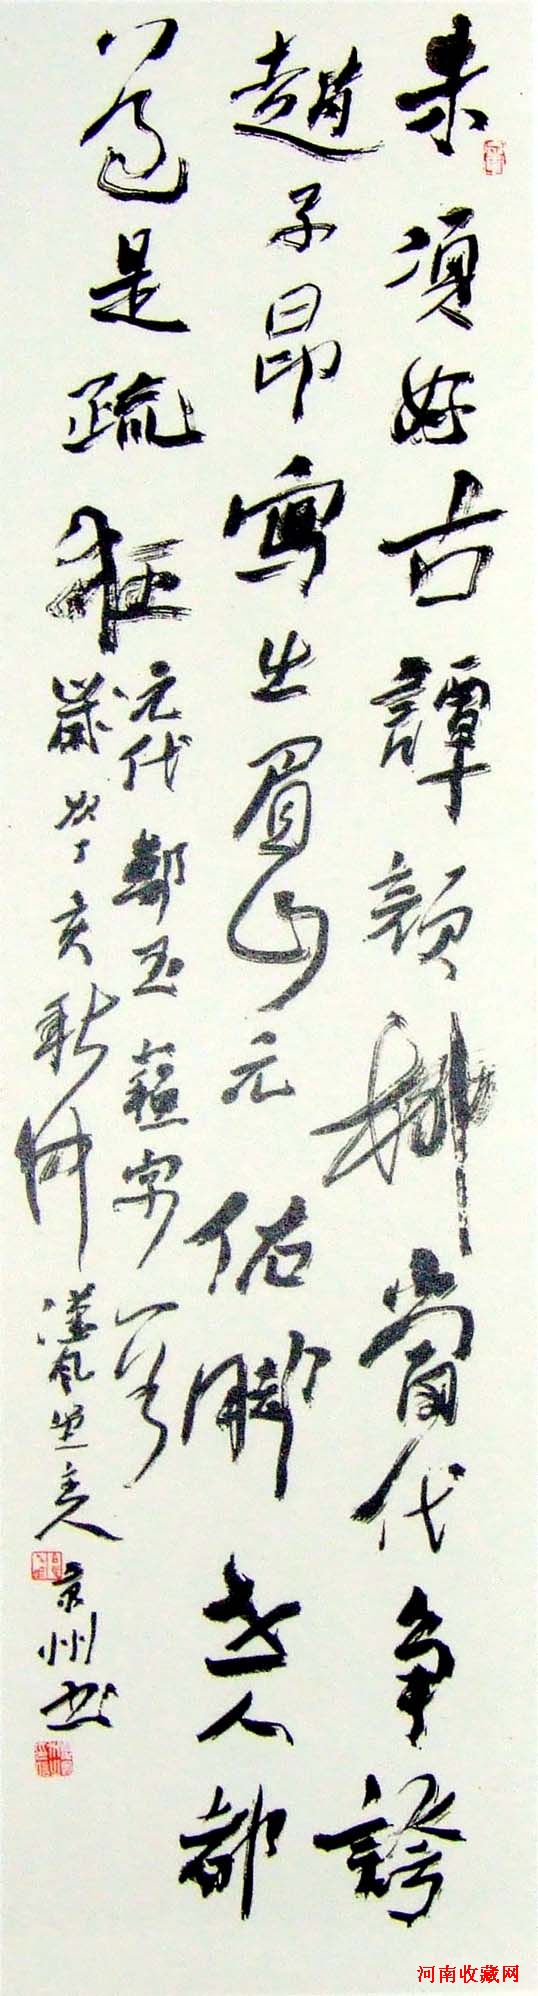 未須好古譚顏柳當代争誇
趙子昂寫出眉山元佑脚世人都
道是疏狂
元代鄭玉蘓字一首
歲次丁亥秋仲漢風堂主人京州书
河南收藏网